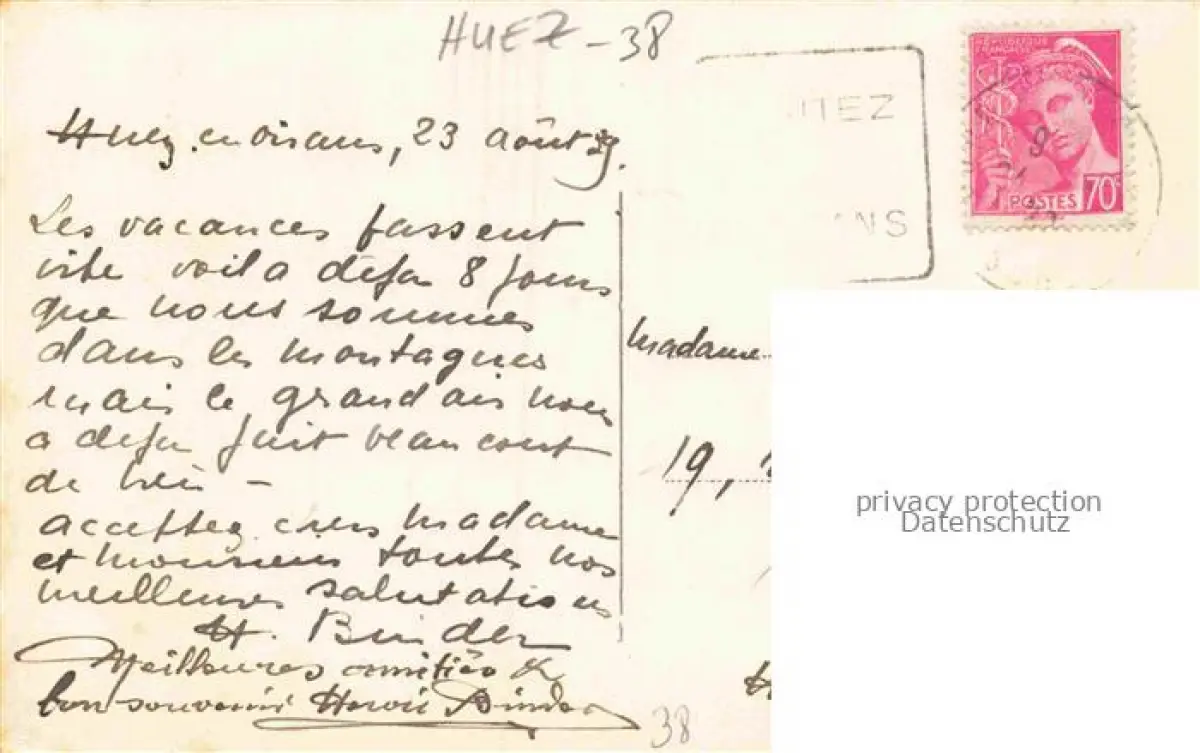 HUEZ - 38
Huez en oisans, 23 Août 39.
Les vacances passent
vite voila deja 8 jours
que nous sommes
dans les montagnes
mais le grand air nous
a deja fait beaucout
de bien -
acceptez chers madame
et monsieur toutes nos
meilleures salutations
H. Binder
Meilleures amitiés &
bon souvenir Binder
ITEZ
ANS
RÉPUBLIQUE
FRANÇAISE
POSTES 70c
Madame
19,
privacy protection
Datenschutz
38